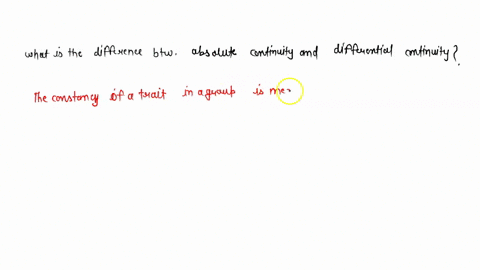 what is the difference btw. absolute continuity and differential continuity?
The constancy of a trait in a group is me